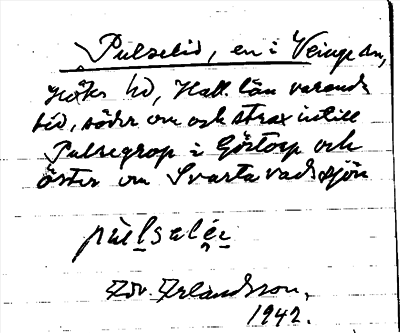 Pulselid, en i Veinge sn,
Höks hd, Hall. län varande
lid, söder om och strax intill
Pulsegrop i Göstorp och
öster om Svartavadssjön
pùlsalée
Edv. Erlandsson.
1942.